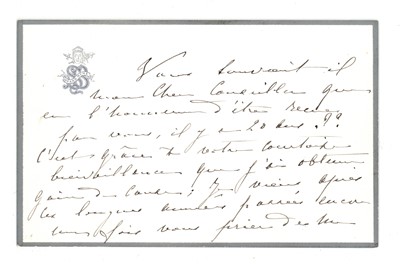 Vous souvient il
mon cher Conseiller que
eu l'honneur d'être reçue
par vous, il y a 20 ans ??
C'est grâce à votre courtoise
bienveillance que j'ai obtenu
gain de cause ; Je viens, après
ces longues années passées encore
une fois vous prier de me